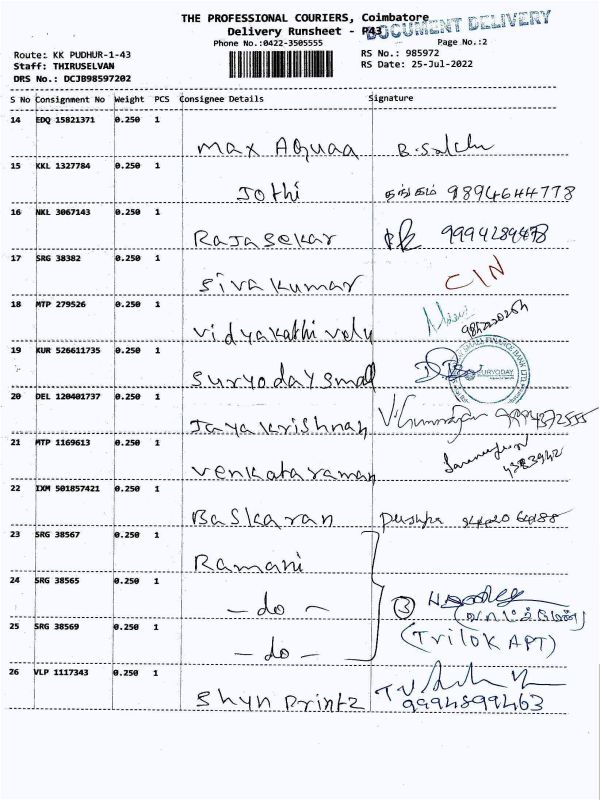 THE PROFESSIONAL COURIERS, Coimbatore
DOCUMENT DELIVERY
Delivery Runsheet - P43
Phone No.:0422-3505555 Page No.:2
Route: KK PUDHUR-1-43 RS No.: 985972
Staff: THIRUSELVAN RS Date: 25-Jul-2022
DRS No.: DCJB98597202
S No Consignment No Weight PCS Consignee Details Signature
14 EDQ 15821371 0.250 1
Max Aquaa
15 KKL 1327784 0.250 1
Jothi தங்கம் 9894644778
16 NKL 3067143 0.250 1
Rajasekar 9994289478
17 SRG 38382 0.250 1
Sivakumar CIN
18 MTP 279526 0.250 1
Vidyakathi velu
19 KUR 526611735 0.250 1
Suryoday Small SURYODAY
20 DEL 120401737 0.250 1
Jayakrishnan 9994372555
21 MTP 1169613 0.250 1
Venkataraman 4383942
22 IXM 501857421 0.250 1
Baskaran pushpa
23 SRG 38567 0.250 1
Ramani
24 SRG 38565 0.250 1
- do - 3
25 SRG 38569 0.250 1
- do - (Trilok APT)
26 VLP 1117343 0.250 1
Shyn Printz 9994899463